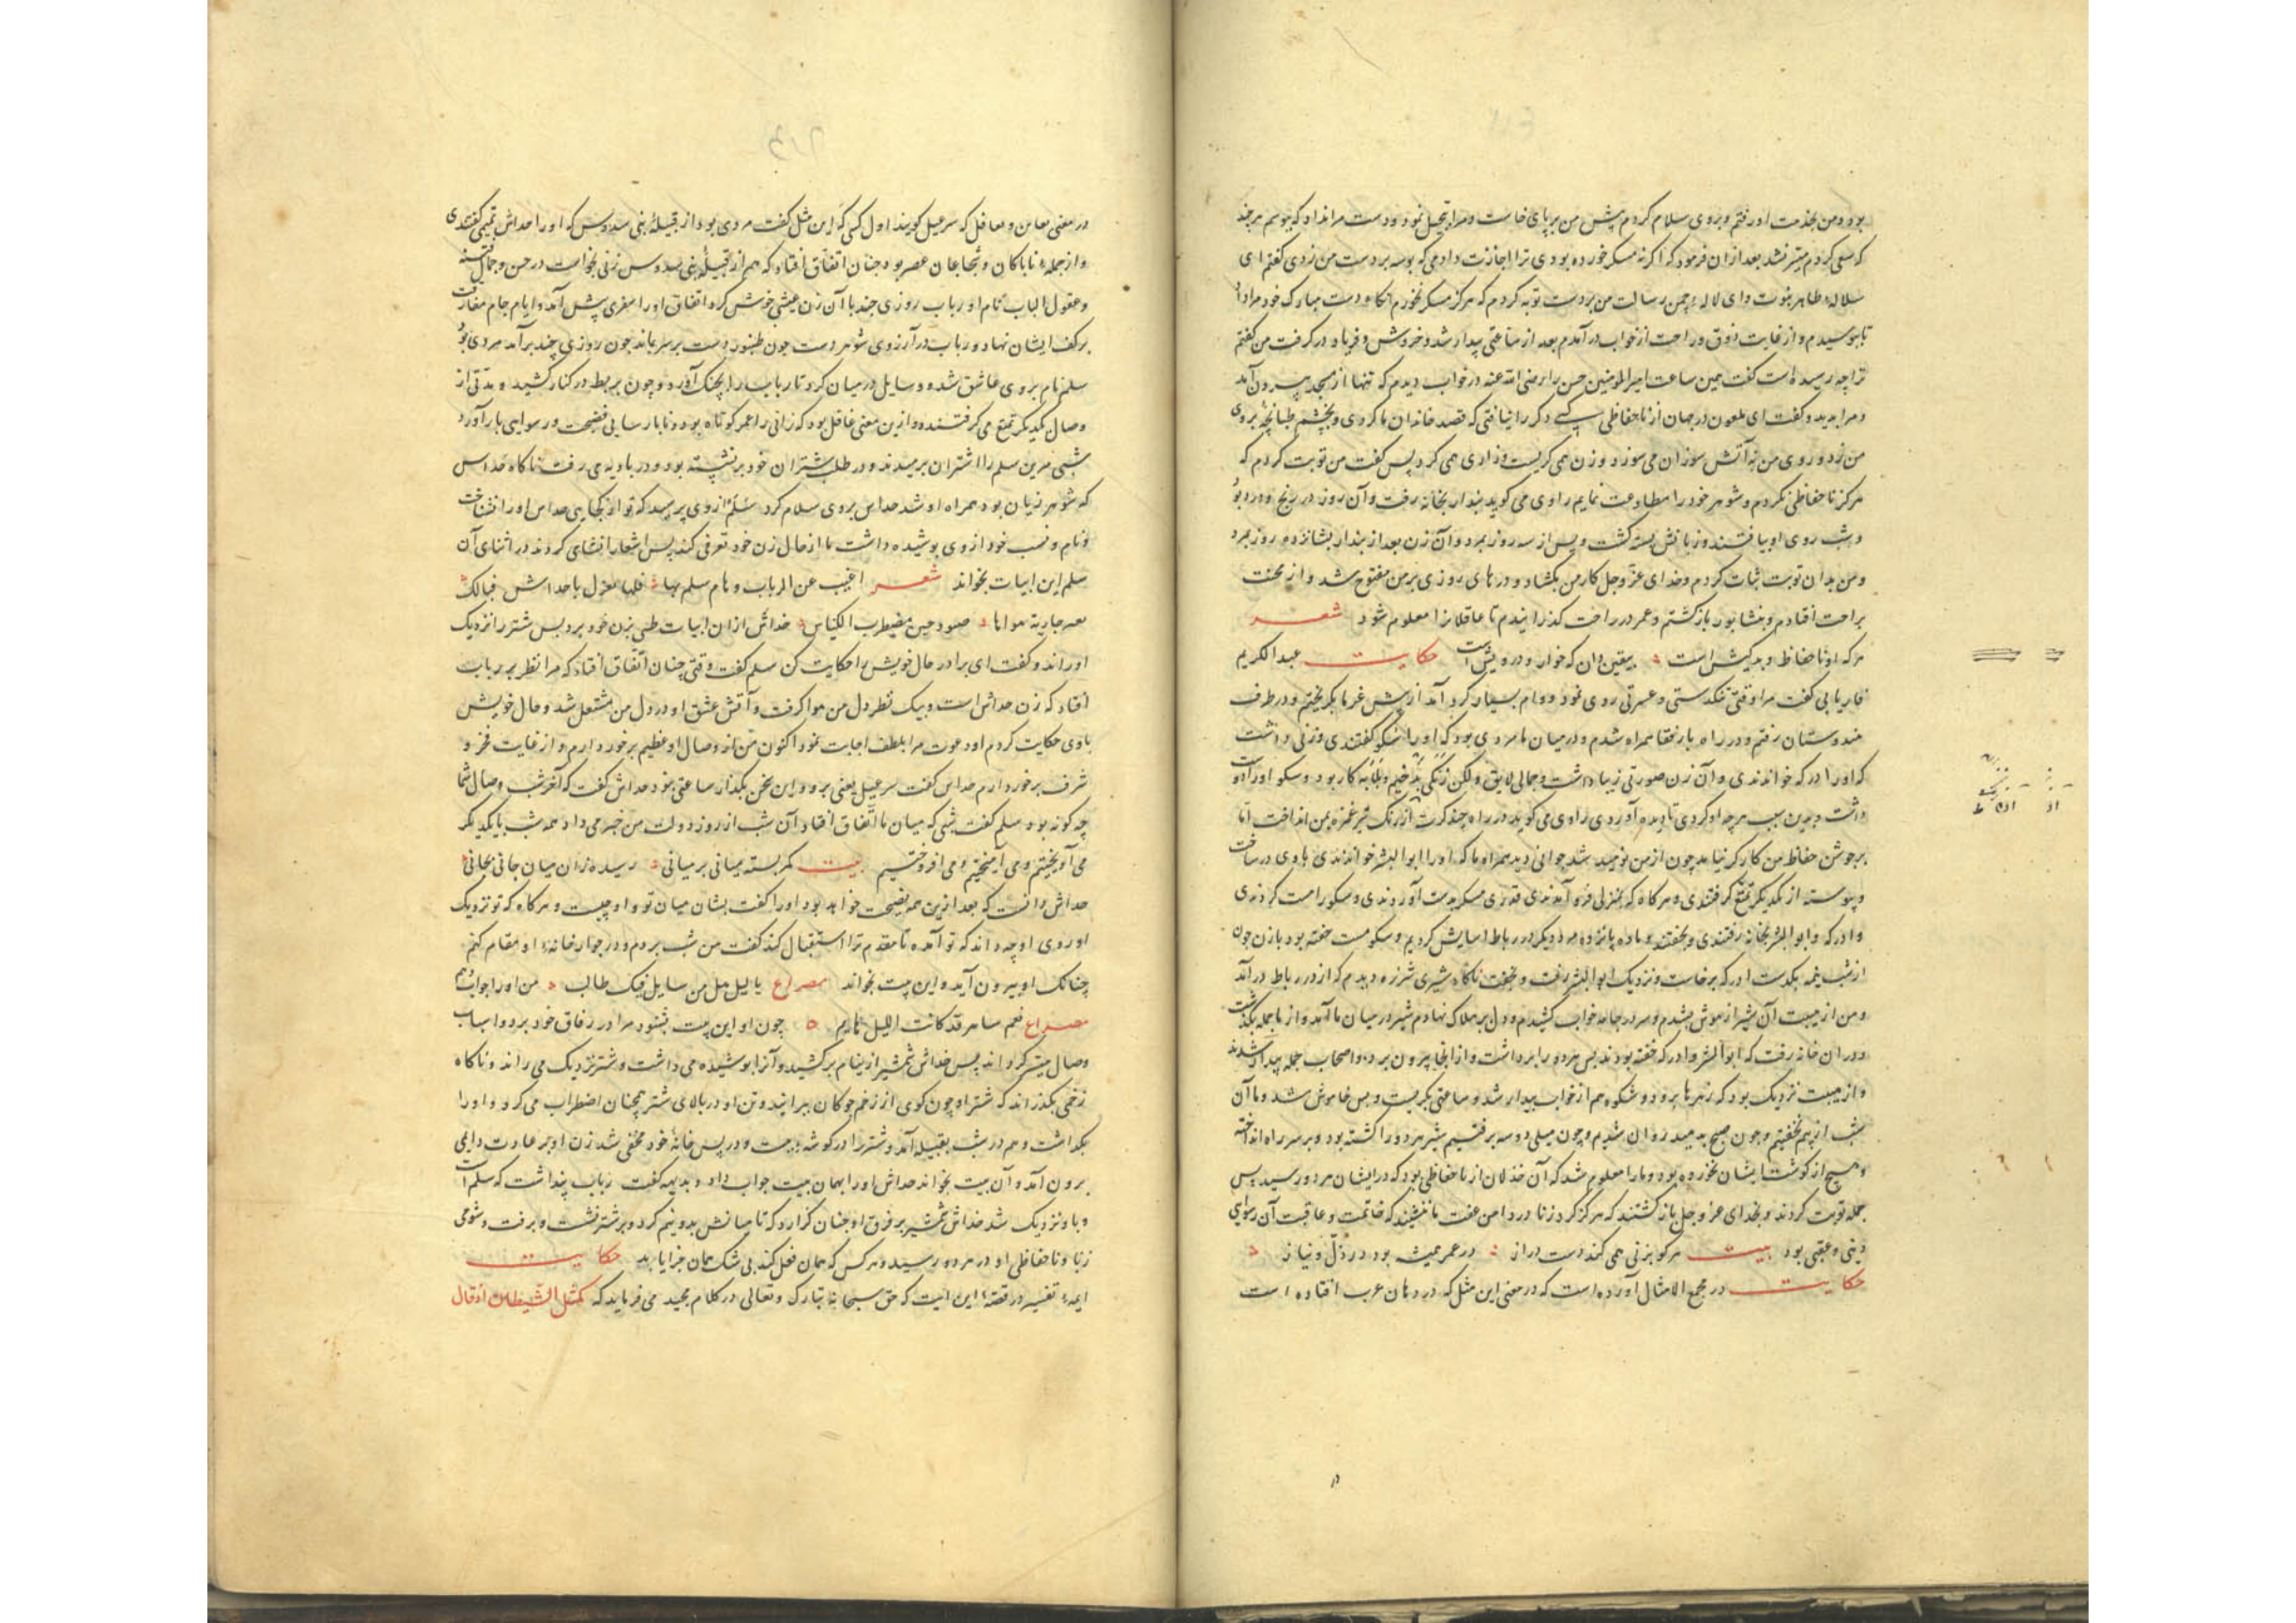 بود و من بخدمت او رفتم و بروی سلام کردم پیش من بر پای خاست و مرا تبجیل نمود و دست مرا نداد که ببوسم هر چند
که سعی کردم میسر نشد بعد از ان فرمود که اکر نه مسکر خورده بودی ترا اجازت دادمی که بوسه بر دست من زدی کفتم ای
سلاله طاهر نبوت و ای لاله چمن رسالت من بر دست توبه کردم که هرکز مسکر نخورم آنکاه دست مبارک خود مرا داد
تا ببوسیدم و از غایت ذوق و راحت از خواب در آمدم بعد از ساعتی بیدار شد و خروش و فریاد در کرفت من کفتم
ترا چه رسیده است کفت همین ساعت امیر المومنین حسن را رضی الله عنه در خواب دیدم که تنها از مسجد بیرون آمد
و مرا بدید و کفت ای ملعون در جهان از ناحفاظی کسی دکر را نیافتی که قصد خاندان ما کردی و بخشم طبانچه بروی
من زد و روی من به آتش سوزان می سوزد و زن همی کریست و زاری همی کرد پس کفت من توبت کردم که
هرکز ناحفاظی نکردم و شوهر خود را مطاوعت نمایم راوی می کوید بندار بخانه رفت و آن روز در رنج و درد بود
و شب روی او بیافتند و زبانش بسته کشت و پس از سه روز بمرد و آن زن بعد از بندار بشانزده روز بمرد
و من بدان توبت ثبات کردم و خدای عز و جل کار من بکشاد و درهای روزی بر من مفتوح شد و از محنت
براحت افتادم و بنشابور باز کشتم و عمر در راحت کذرانیدم تا عاقلانرا معلوم شود شعر
هر که او نا حفاظ و بد کیش است بیقین دان که خوار و درویش است حکایت عبد الکریم
فاریابی کفت مرا وقتی تنکدستی و عسرتی روی نمود و وام بسیار کرد آمد از پیش غرما بکریختم و در طرف
هندوستان رفتم و در راه با رفقا همراه شدم و در میان ما مردی بود که او را سکو کفتندی و زنی داشت
که او را درکه خواندندی و آن زن صورتی زیبا داشت و جمالی لایق ولکن زنکی بد خیم و بلابه کار بود و سکو او را دوست
داشت و بدین سبب هر چه او کردی نادیده آوردی راوی می کوید در راه چند کرت از رنک تیر غمزه بمن انداخت اما
بر جوشن حفاظ من کارکر نیامد چون از من نومید شد جوانی دید همراه ما که او را ابو البشر خواندندی با وی در ساخت
و پیوسته از یکدیکر تمتع کرفتندی و هرکاه که بمنزلی فرو آمدندی قدری مسکر بدست آوردندی و سکو را مست کردندی
و درکه و ابو البشر بخانه رفتندی و بخفتند و ما ده پانزده مرد دیکر در رباط اسایش کردیم و سکو مست خفته بود با زن چون
از شب نیمه بکذشت درکه برخاست و نزدیک ابو البشر رفت و بخفت ناکاه شیری شرزه دیدم که از در رباط در آمد
و من از هیبت آن شیر از هوش بشدم و سر در جامه خواب کشیدم و دل بر هلاک نهادم شیر در میان ما آمد و از ما جمله بکذشت
و در ان خانه رفت که ابو البشر و درکه خفته بودند پس هر دو را برداشت و از انجا بیرون برد و اصحاب جمله بیدار شدند
و از هیبت نزدیک بود که زهرها برود و شکوه هم از خواب بیدار شد و ساعتی بکریست و بس خاموش شد و ما آن
شب از بیم نخفتیم و چون صبح بدمید روان شدیم و چون میلی دو سه برفتیم شیر هر دو را کشته بود و بر سر راه انداخته
و هیچ از کوشت ایشان نخورده بود و ما را معلوم شد که آن خذلان از ناحفاظی بود که در ایشان هر دو رسید پس
جمله توبت کردند و بخدای عز و جل باز کشتند که هرکز کرد زنا و در دامن عفت ما ننشیند که خاتمت و عاقبت آن رسوایی
دینی و عقبی بود بیت هر کو بزنی همی کند دست دراز در عمر همیشه بود در ذل و نیاز
حکایت در مجمع الامثال آورده است که در معنی این مثل که در دهان عرب افتاده است
در معنی که سرعیل کویند اول کسی که این مثل کفت مردی بود از قبیله بنی سدوس که او را حداش کفتندی
و از جمله ناباکان و شجاعان عصر بود چنان اتفاق افتاد که هم از قبیله بنی سدوس زنی بخواست در حسن و جمال فتنه
و عقول الباب نام او رباب روزی چند با آن زن عیشی خوش کرد اتفاق او را سفری پیش آمد و ایام جام مفارقت
بر کف ایشان نهاد و رباب در آرزوی شوهر دست چون طنبور دست بر سر بماند چون روزی چند بر آمد مردی بود
سلم نام بر وی عاشق شد و وسایل در میان کرد تا رباب را بچنک آورد و چون بربط در کنار کشید و مدتی از
وصال یکدیکر تمتع می کرفتند و ازین معنی غافل بود که زانی را عمر کوتاه بود و زنا بار سایی فضیحت و رسوایی بار آورد
شبی مر این سلم را اشتران برمیدند و در طلب شتران خود بر نشسته بود و در بادیه می رفت ناکاه حداس
که شوهر زن بود همراه او شد حداس بر وی سلام کرد سلم از وی پرسید که تو از کجایی حداس او را نشناخت
و نام و نسب خود از وی بوشیده داشت تا از حال زن خود تعرفی کند پس اشعار انشای کردند در اثنای آن
سلم این ابیات بخواند شعر اغیب عن الرباب و هام سلم بها یا حداش فیالک
جاریة هواها مضطرب الکناس خداش از ان ابیات ظنی بزن خود برد بس شتر را نزدیک
او راند و کفت ای برادر حال خویش را حکایت کن سلم کفت وقتی چنان اتفاق افتاد که مرا نظر بر رباب
افتاد که زن حداش است و بیک نظر دل من هوا کرفت و آتش عشق او در دل من مشتعل شد و حال خویش
با وی حکایت کردم او دعوت مرا بلطف اجابت نمود اکنون من از وصال او عظیم برخوردارم و از غایت فخر و
شرف برخوردارم حداس کفت سرعیل یعنی برو و این سخن بکذار ساعتی بود حداش کفت که آخر شب وصال شما
چه کونه بود سلم کفت شبی که میان ما اتفاق افتاد آن شب از روز دولت من خبر می داد همه شب با یکدیکر
می آویختم و می آمیختم و می افروختیم بیت کمر بسته میانی بر میانی رسیده زان میان جانی بجانی
حداش دانست که بعد ازین همه فضیحت خواهد بود او را کفت نشان میان تو و او چیست و هرکاه که تو نزدیک
او روی او چه داند که تو آمده تا مقدم ترا استقبال کند کفت من شب بروم و در جوار خانه او مقام کنم
چنانک او بیرون آید و این بیت بخواند مصراع یا لیل هل من سایل فیک طالب من او را جواب دهم
مصراع نعم ساهر قد کانت اللیل نایم چون او این بیت بشنود مرا در رفاق خود برد و اسباب
وصال میسر کرداند پس خداش شمشیر از نیام بر کشید و آنرا بوشیده می داشت و شتر نزدیک می راند و ناکاه
زخمی بکذراند که شتر او چون کوی از زخم چوکان ببرانید و تن او در بالای شتر همچنان اضطراب می کرد و او را
بکذاشت و هم در شب بقبیله آمد و شتر را در کوشه ببست و در پس خانه خود مخفی شد زن او بر عادت دایمی
برون آمد و آن بیت بخواند حداش او را بهمان بیت جواب داد و بدیهه کفت رباب پنداشت که سلم است
و با و نزدیک شد خداش شمشیر بر فرق او چنان کزارد که تا میانش بدو نیم کرد و بر شتر نشست و برفت و شومی
زنا و ناحفاظی او در هر دو رسید و هر کس که همان فعل کند بی شک همان جزا یابد حکایت
ایمه تفسیر در قصه این ایت که حق سبحانه تبارک و تعالی در کلام مجید می فرماید که کمثل الشیطان اذ قال